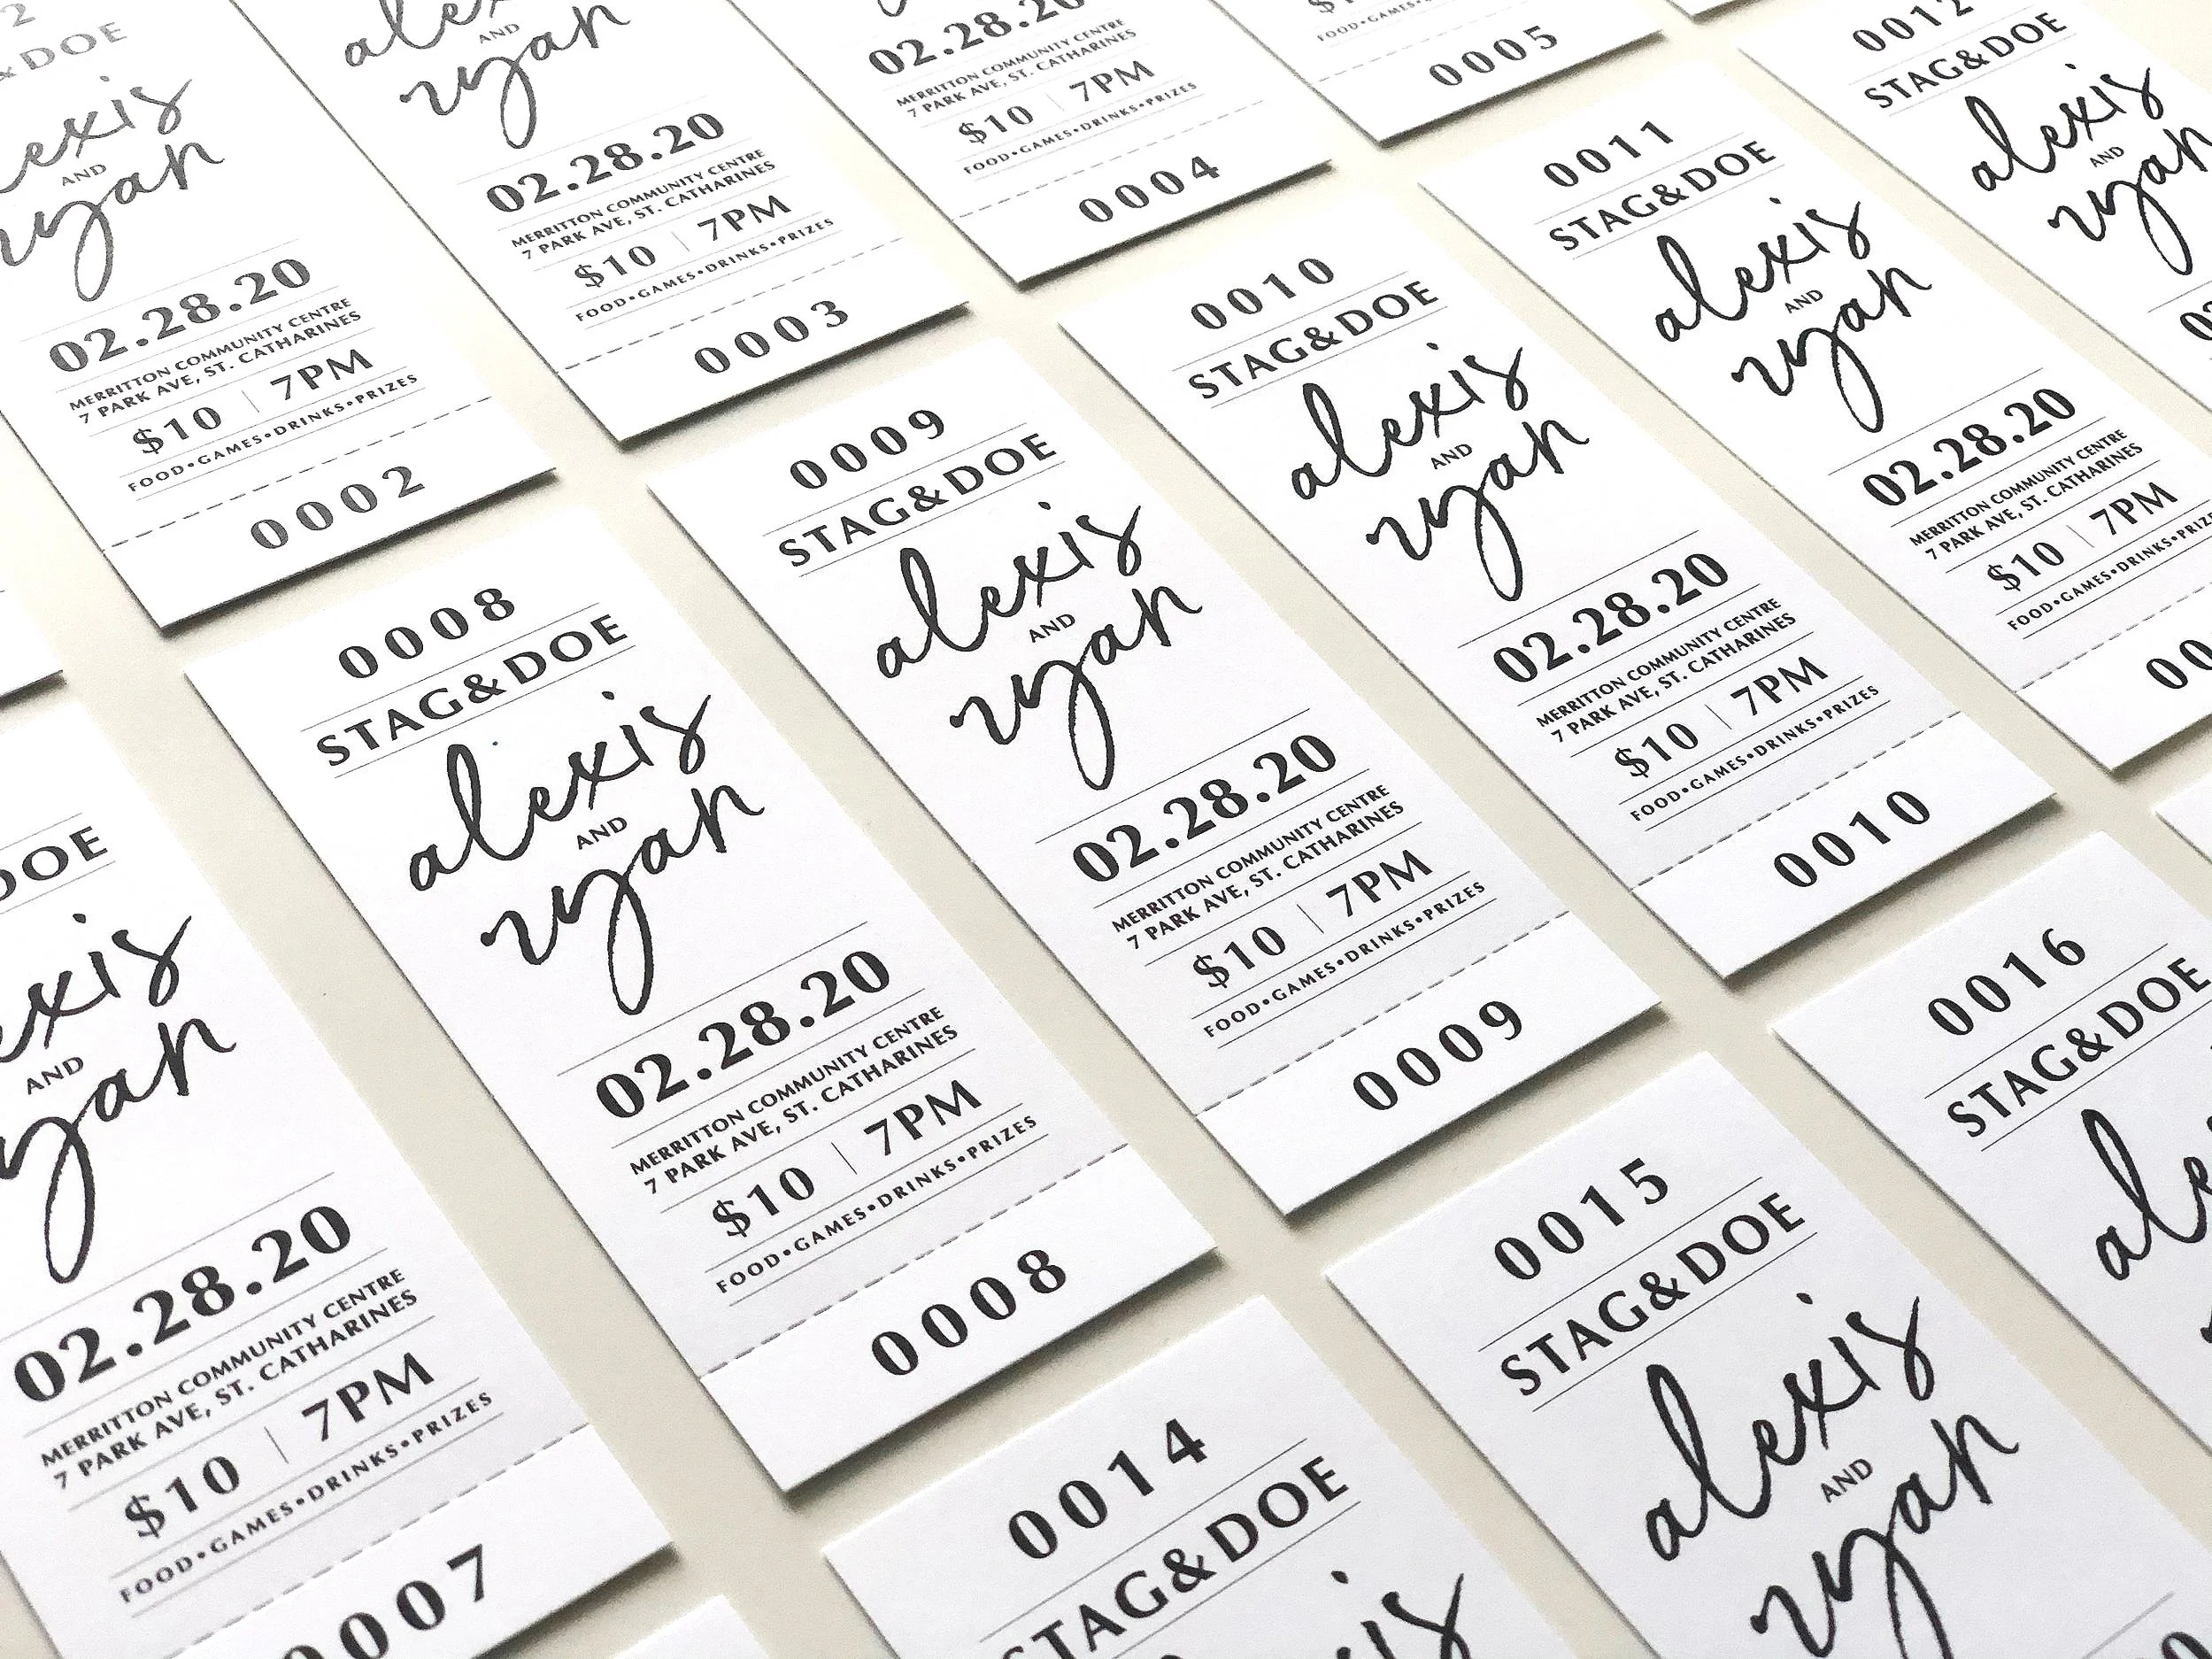 2
& DOE
alexis
AND
ryan
02.28.20
MERRITTON COMMUNITY CENTRE
7 PARK AVE, ST. CATHARINES
$10 | 7PM
FOOD•GAMES•DRINKS•PRIZES
0002
alexis
AND
ryan
02.28.20
MERRITTON COMMUNITY CENTRE
7 PARK AVE, ST. CATHARINES
$10 | 7PM
FOOD•GAMES•DRINKS•PRIZES
0003
02.28.20
MERRITTON COMMUNITY CENTRE
7 PARK AVE, ST. CATHARINES
$10 | 7PM
FOOD•GAMES•DRINKS•PRIZES
0004
0005
DOE
alexis
AND
ryan
02.28.20
MERRITTON COMMUNITY CENTRE
7 PARK AVE, ST. CATHARINES
$10 | 7PM
FOOD•GAMES•DRINKS•PRIZES
0007
0008
STAG&DOE
alexis
AND
ryan
02.28.20
MERRITTON COMMUNITY CENTRE
7 PARK AVE, ST. CATHARINES
$10 | 7PM
FOOD•GAMES•DRINKS•PRIZES
0008
0009
STAG&DOE
alexis
AND
ryan
02.28.20
MERRITTON COMMUNITY CENTRE
7 PARK AVE, ST. CATHARINES
$10 | 7PM
FOOD•GAMES•DRINKS•PRIZES
0009
0010
STAG&DOE
alexis
AND
ryan
02.28.20
MERRITTON COMMUNITY CENTRE
7 PARK AVE, ST. CATHARINES
$10 | 7PM
FOOD•GAMES•DRINKS•PRIZES
0010
0011
STAG&DOE
alexis
AND
ryan
02.28.20
MERRITTON COMMUNITY CENTRE
7 PARK AVE, ST. CATHARINES
$10 | 7PM
FOOD•GAMES•DRINKS•PRIZES
00
0012
STAG&DOE
alexis
AND
ryan
0014
STAG&DOE
0015
STAG&DOE
alexis
AND
ryan
0016
STAG&DOE